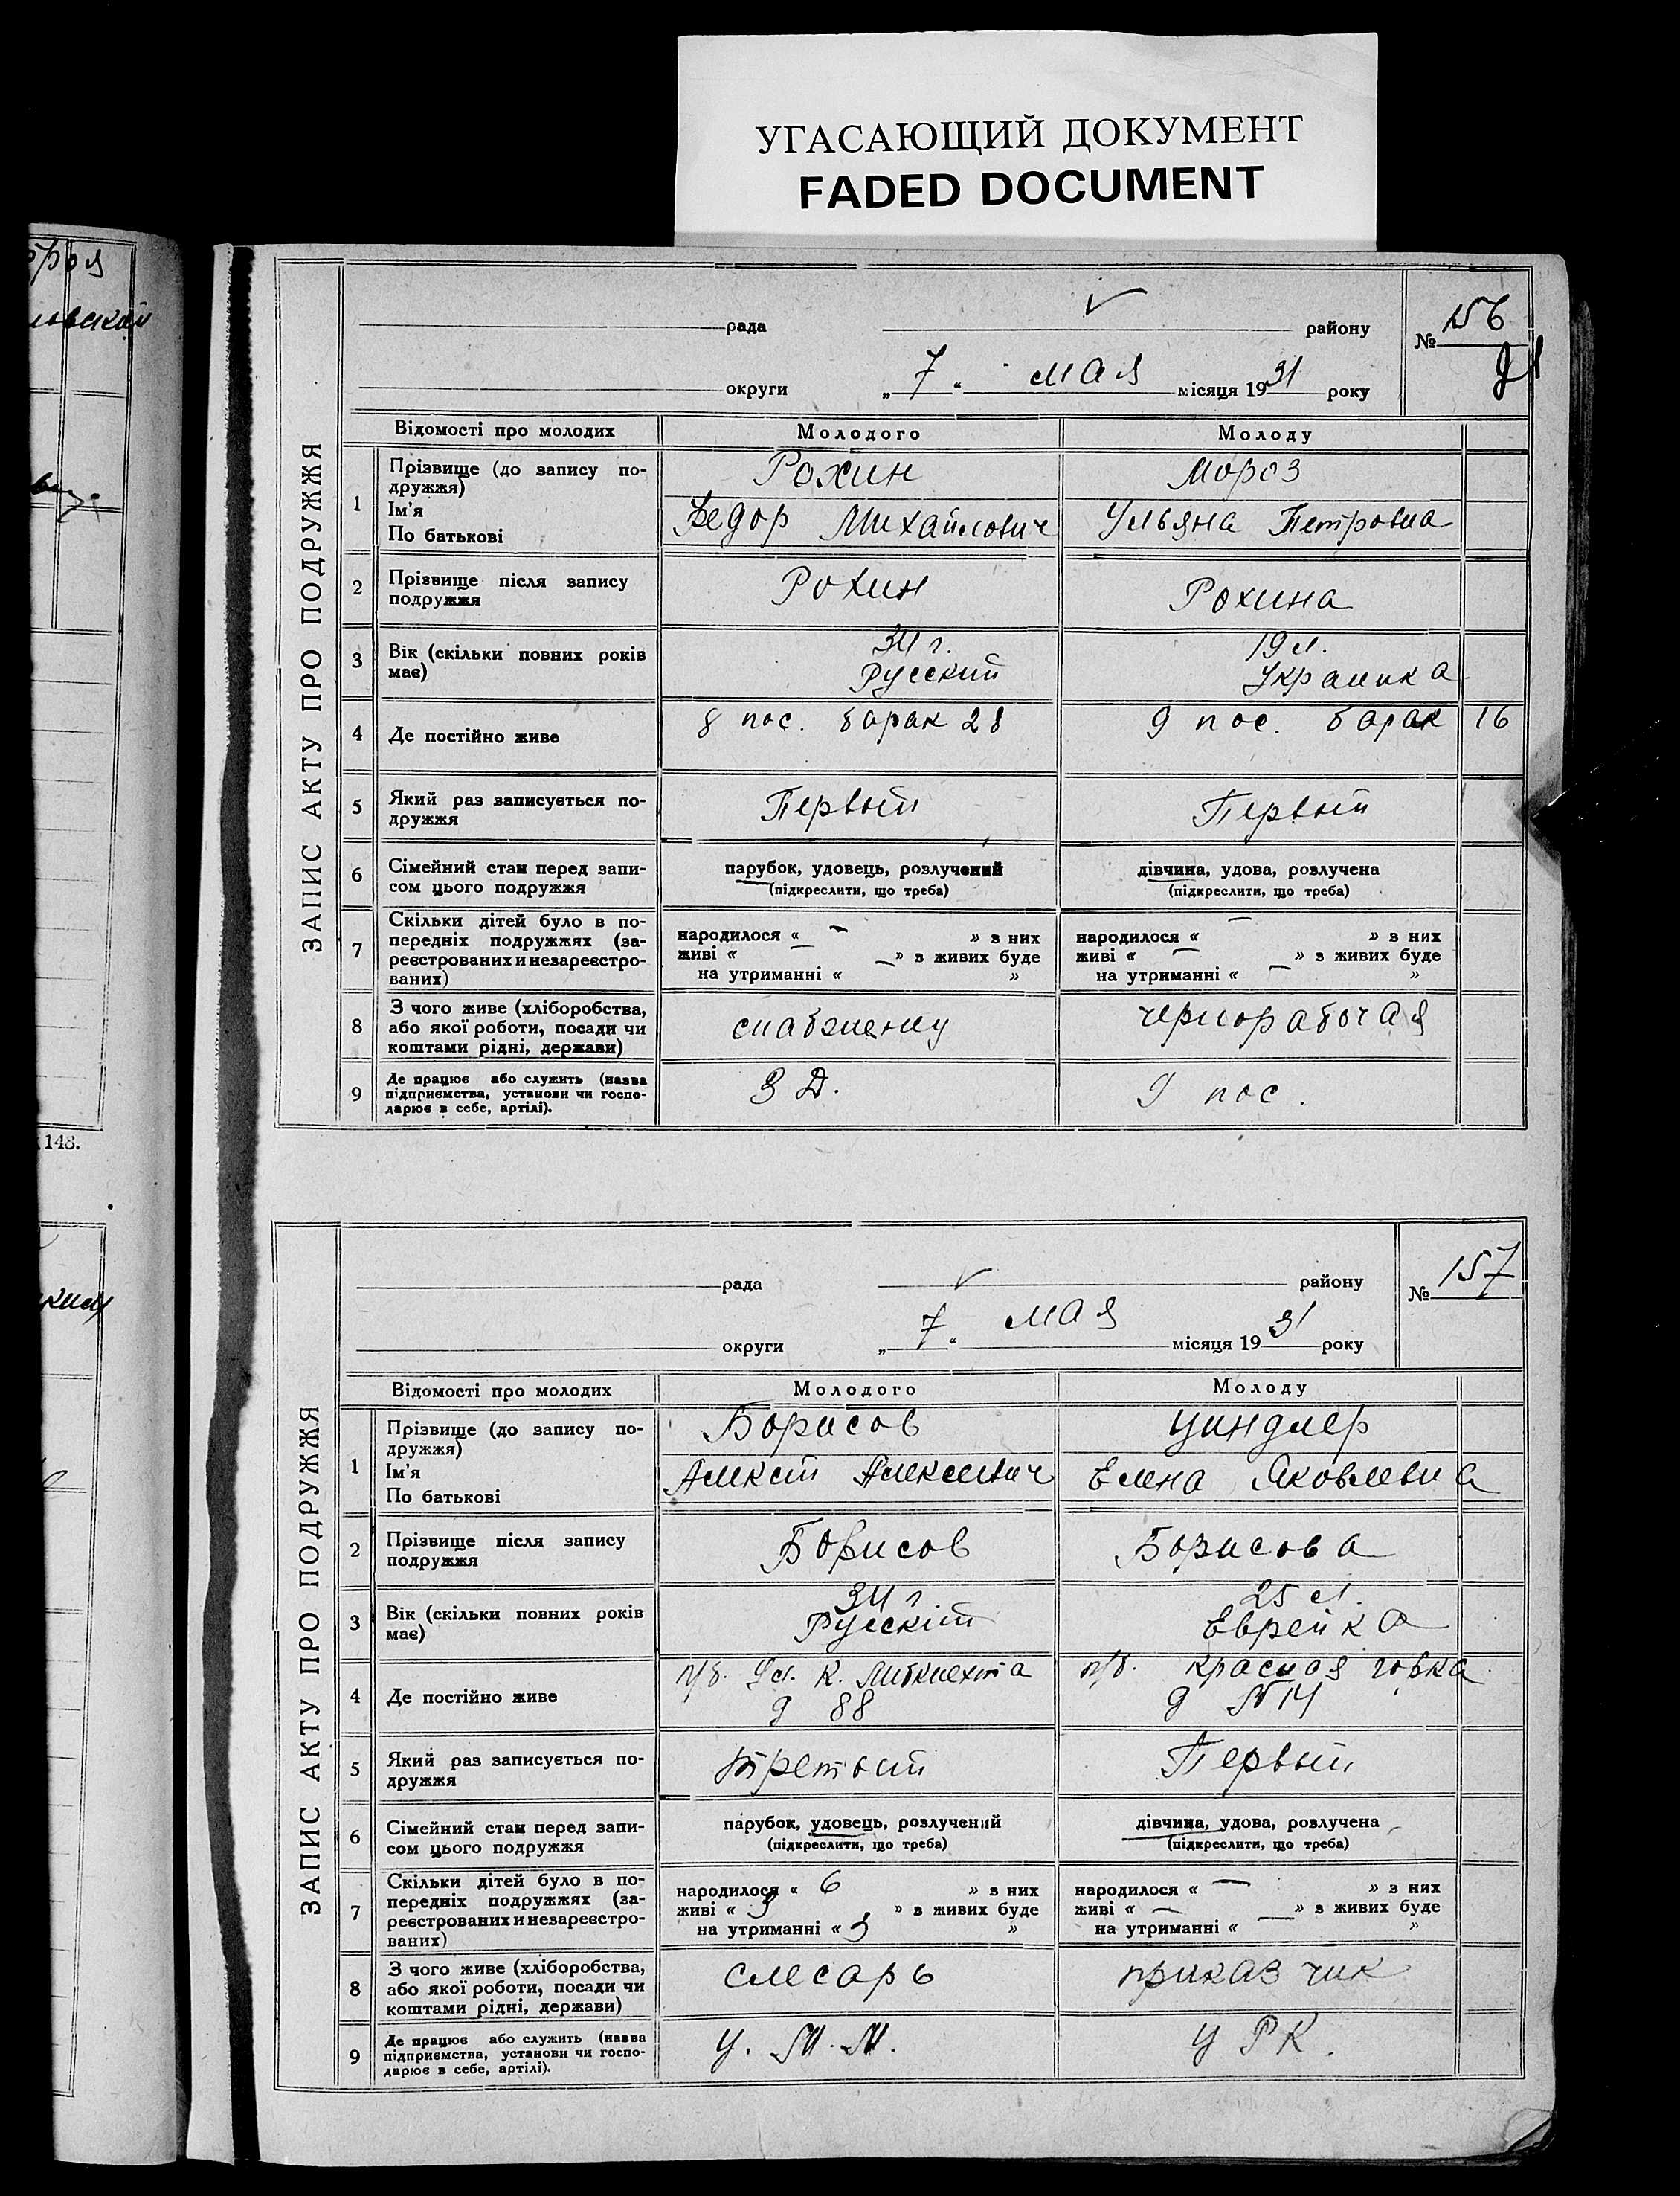 УГАСАЮЩИЙ ДОКУМЕНТ
FADED DOCUMENT
148.
ЗАПИС АКТУ ПРО ПОДРУЖЖЯ
рада району
№ 156
округи „7“ мая місяця 1931 року
91
Відомості про молодих Молодого Молоду
1 Прізвище (до запису по-
дружжя)
Ім'я
По батькові
Рохин Мороз
Федор Михайлович Ульяна Петровна
2 Прізвище після запису
подружжя
Рохин Рохина
3 Вік (скільки повних років
має)
34 г. 19 л.
Русский Украинка
4 Де постійно живе
8 пос. барак 28 9 пос. барак 16
5 Який раз записується по-
дружжя
Первый Первый
6 Сімейний стан перед запи-
сом цього подружжя
парубок, удовець, розлучений дівчина, удова, розлучена
(підкреслити, що треба) (підкреслити, що треба)
7 Скільки дітей було в по-
передніх подружжях (за-
реєстрованих и незареєстро-
ваних)
народилося « — » з них народилося « — » з них
живі « — » з живих буде живі « — » з живих буде
на утриманні « — » на утриманні « — »
8 З чого живе (хліборобства,
або якої роботи, посади чи
коштами рідні, держави)
чернорабочая
9 Де працює або служить (назва
підприємства, установи чи госпо-
дарює в себе, артілі).
З Д. 9 пос.
ЗАПИС АКТУ ПРО ПОДРУЖЖЯ
рада району
№ 157
округи „7“ мая місяця 1931 року
Відомості про молодих Молодого Молоду
1 Прізвище (до запису по-
дружжя)
Ім'я
По батькові
Борисов Циндлер
Алексей Алексеевич Елена Яковлевна
2 Прізвище після запису
подружжя
Борисов Борисова
3 Вік (скільки повних років
має)
34 г 25 л.
Русский Еврейка
4 Де постійно живе
п/б. Ул. К. Либкнехта п/б. красная горка
д 88 д № 14
5 Який раз записується по-
дружжя
Третьий Первый
6 Сімейний стан перед запи-
сом цього подружжя
парубок, удовець, розлучений дівчина, удова, розлучена
(підкреслити, що треба) (підкреслити, що треба)
7 Скільки дітей було в по-
передніх подружжях (за-
реєстрованих и незареєстро-
ваних)
народилося « 6 » з них народилося « — » з них
живі « 3 » з живих буде живі « — » з живих буде
на утриманні « 3 » на утриманні « — »
8 З чого живе (хліборобства,
або якої роботи, посади чи
коштами рідні, держави)
слесарь приказчик
9 Де працює або служить (назва
підприємства, установи чи госпо-
дарює в себе, артілі).
У. М. М. У Р К.